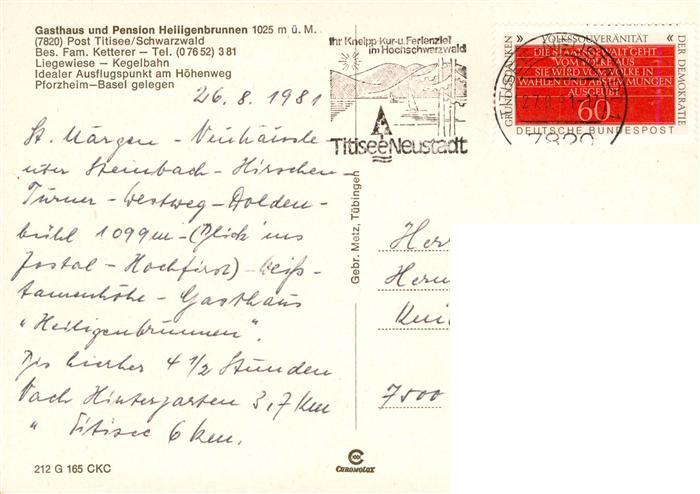 Gasthaus und Pension Heiligenbrunnen 1025 m ü. M.
(7820) Post Titisee/Schwarzwald
Bes. Fam. Ketterer — Tel. (0 76 52) 3 81
Liegewiese — Kegelbahn
Idealer Ausflugspunkt am Höhenweg
Pforzheim-Basel gelegen
26.8.1981
St. Märgen - Neuhäusle
unter Steinbach - Hirschen-
Turner - Westweg - Dolden-
bühl 1099m - (Blick ins
Jostal - Hochfirst) - Weiß-
tannenhöhe - Gasthaus
"Heiligenbrunnen".
Bis hierher 4 1/2 Stunden
Nach Hinterzarten 3,7 Km
" Titisee 6 km.
212 G 165 CKC
Gebr. Metz, Tübingen
CHROMOLUX
Ihr Kneipp-Kur-u. Ferienziel
im Hochschwarzwald
Titisee Neustadt
GRUNDGEDANKEN
» VOLKSSOUVERÄNITÄT «
DER DEMOKRATIE
DIE STAATSGEWALT GEHT
VOM VOLKE AUS
SIE WIRD VOM VOLKE IN
WAHLEN UND ABSTIMMUNGEN
AUSGEÜBT
60
DEUTSCHE BUNDESPOST
7820
Herr
7500